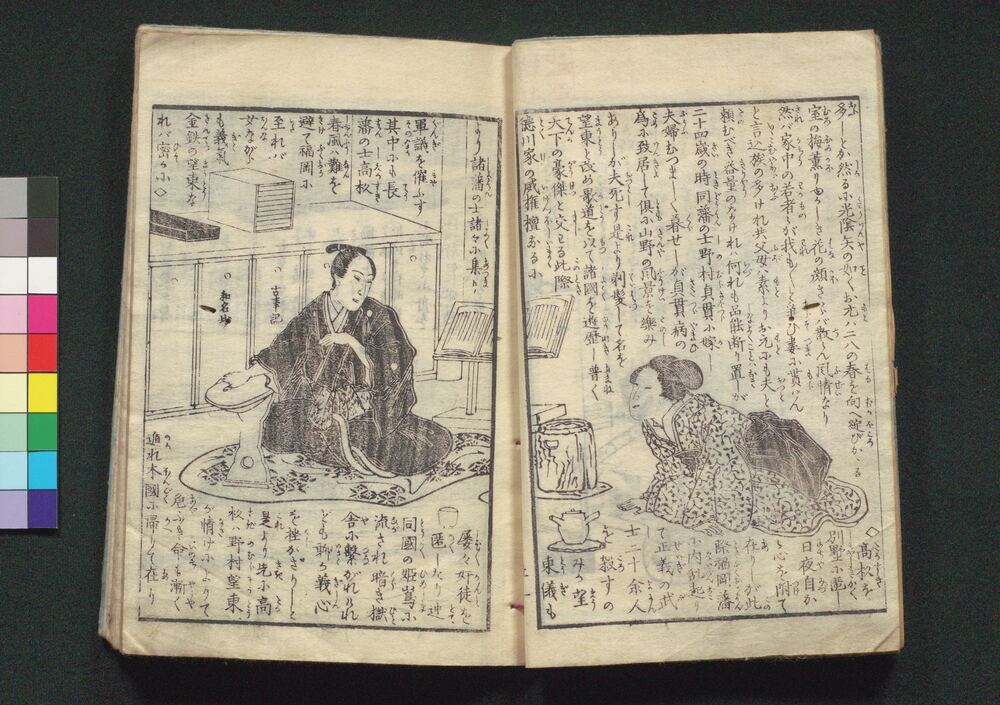 多しとか然るに光陰矢の如くお元ハ二八の春を向へ綻びかゝる
室の梅薫りゆかしき花の顔さそハば散ん風情なり
然バ家中の若者が我も〳〵と争ひ妻に貰ハん
と言込族の多けれ共父母ハ素よりお元にも夫と
頼むべき容量のなけれハ何れも品能断り置しが
二十四歳の時同藩の士野村貞貫に嫁し
夫婦むつましく暮せしが貞貫病の
為に致居して俱に山野の風景を楽み
ありしが夫死す是より剃髪して名を
望東と改め歌道を以て諸國を遊歴し普く
天下の豪傑と交わる此際
徳川家の威権擅なるに
◇高杦を
別墅に匿し
日夜自か
ら心を附て
在りしが此
際福岡藩
に内乱起り
て正義の武
士二十余人
を殺すの
みか望
東儀も
より諸藩の士諸々に集ハ
軍議を催ふす
其中にも長
藩の士高杦
春風ハ難を
避て福岡に
至れバ
女ながら
も義気
金鉄の望東な
れバ密かに◇
古事記
和名抄
屡々奸徒を
匿したり迚
同國の姫嶌に
流され暗き獄
舎に繋がれゝれ
ども聊か義心
を挫かざりしと
是より先に高
杦ハ野村望東
が情によりて
危ふき命も漸く
逃れ本國に帰りて在り